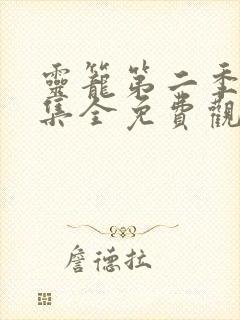 靈籠第二季
集全免費觀
詹德拉